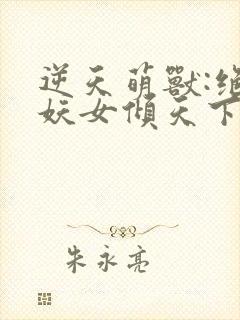 逆天萌獸:絕
妖女傾天下
朱永亮